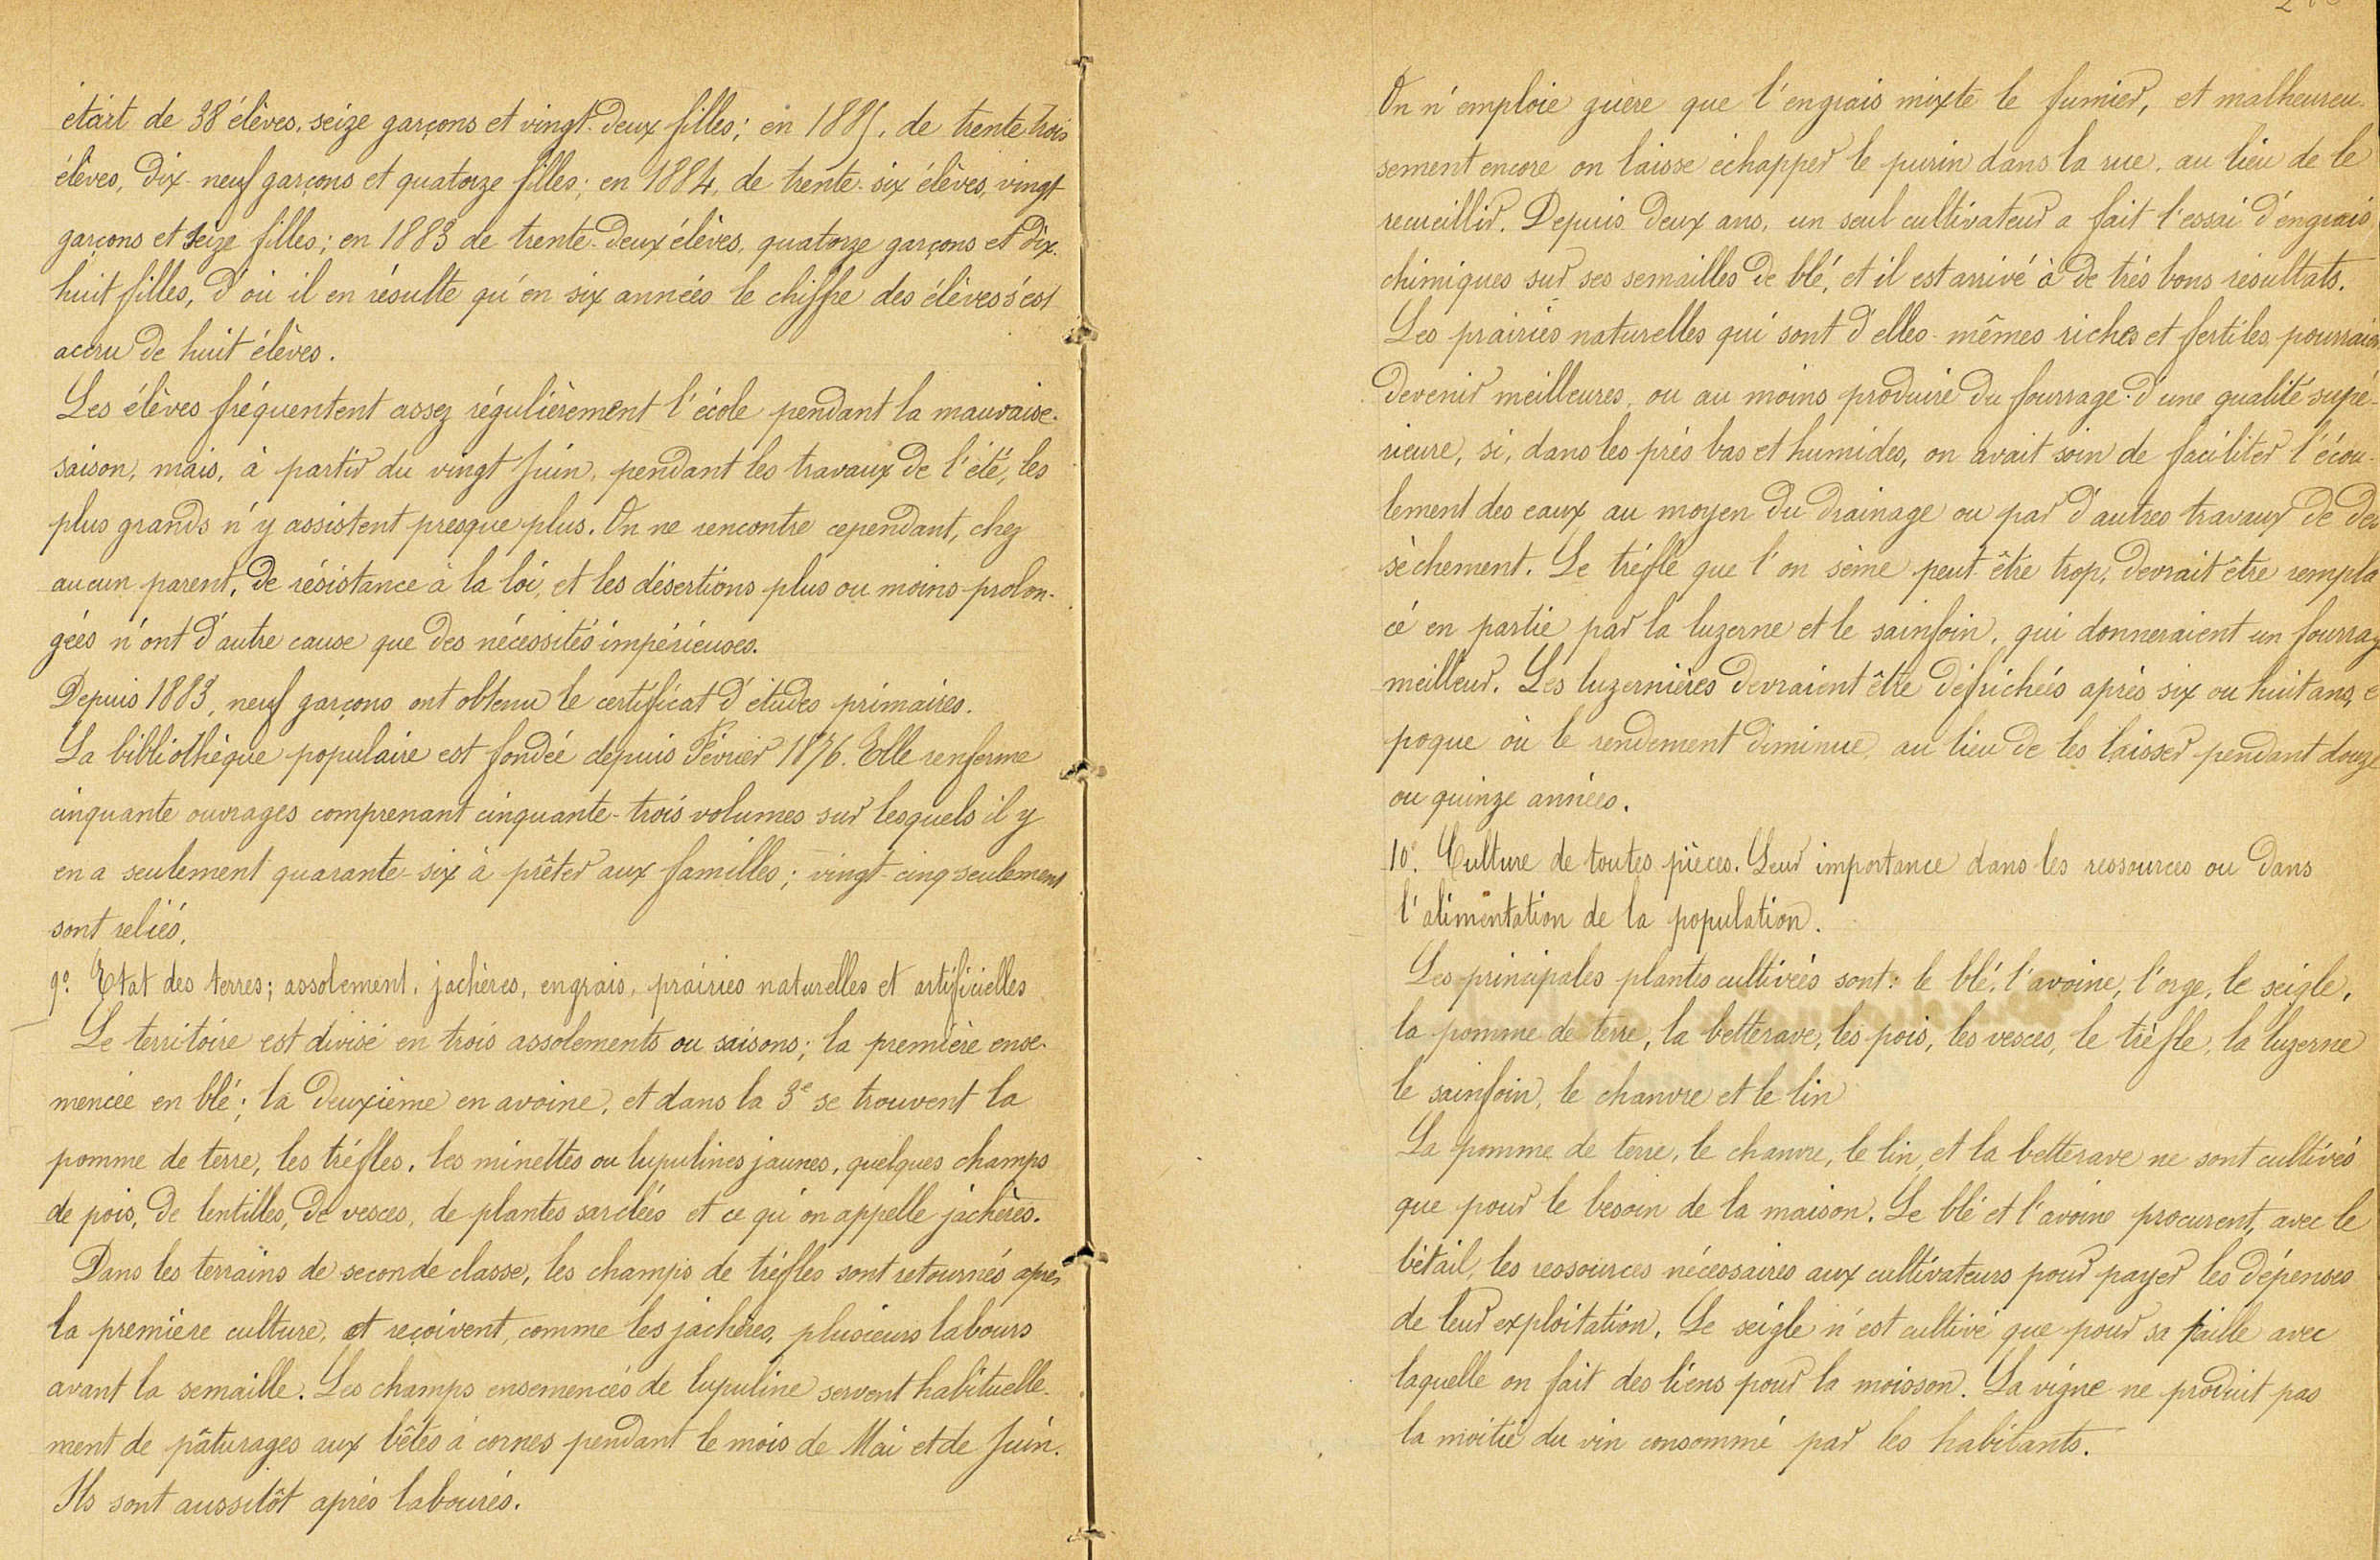 était de 38 élèves, seize garçons et vingt-deux filles; en 1885, de trente trois
élèves, dix-neuf garçons et quatorze filles; en 1884, de trente-six élèves, vingt
garçons et seize filles; en 1883 de trente-deux élèves, quatorze garçons et dix-
huit filles, d'où il en résulte qu'en six années le chiffre des élèves s'est
accru de huit élèves.
Les élèves fréquentent assez régulièrement l'école pendant la mauvaise
saison, mais, à partir du vingt Juin, pendant les travaux de l'été, les
plus grands n'y assistent presque plus. On ne rencontre cependant, chez
aucun parent, de résistance à la loi, et les désertions plus ou moins prolon-
gées n'ont d'autre cause que des nécessités impérieuses.
Depuis 1883, neuf garçons ont obtenu le certificat d'études primaires.
La bibliothèque populaire est fondée depuis Février 1876. Elle renferme
cinquante ouvrages comprenant cinquante-trois volumes sur lesquels il y
en a seulement quarante-six à prêter aux familles; vingt-cinq seulement
sont reliés.
9º. Etat des terres; assolement, jachères, engrais, prairies naturelles et artificielles
Le territoire est divisé en trois assolements ou saisons; la première ense-
mencée en blé; la deuxième en avoine, et dans la 3e se trouvent la
pomme de terre, les tréfles, les minettes ou lupulines jaunes, quelques champs
de pois, de lentilles, de vesces, de plantes sarclées et ce qu'on appelle jachères.
Dans les terrains de seconde classe, les champs de tréfles sont retournés après
la première culture, et reçoivent, comme les jachères, plusieurs labours
avant la semaille. Les champs ensemencés de lupuline servent habituelle-
ment de pâturages aux bêtes à cornes pendant le mois de Mai et de Juin.
Ils sont aussitôt après labourés.
On n'emploie guère que l'engrais mixte le fumier, et malheureu-
sement encore on laisse échapper le purin dans la rue, au lieu de le
recueillir. Depuis deux ans, un seul cultivateur a fait l'essai d'engrais
chimiques sur ses semailles de blé, et il est arrivé à de très bons résultats.
Les prairies naturelles qui sont d'elles-mêmes riches et fertiles, pourraien
devenir meilleures, ou au moins produire du fourrage d'une qualité supé-
rieure, si, dans les prés bas et humides, on avait soin de faciliter l'écou-
lement des eaux au moyen du drainage ou par d'autres travaux de des
sèchement. Le tréfle que l'on sème peut-être trop, devrait être rempla
cé en partie par la luzerne et le sainfoin, qui donneraient un fourrag
meilleur. Les luzernières devraient être défrichées après six ou huit ans, é
poque où le rendement diminue, au lieu de les laisser pendant douze
ou quinze années.
10º. Culture de toutes pièces. Leur importance dans les ressources ou dans
l'alimentation de la population.
Les principales plantes cultivées sont: le blé, l'avoine, l'orge, le seigle,
la pomme de terre, la betterave, les pois, les vesces, le trèfle, la luzerne
le sainfoin, le chanvre et le lin
La pomme de terre, le chanvre, le lin, et la betterave ne sont cultivés
que pour le besoin de la maison. Le blé et l'avoine procurent, avec le
bétail, les ressources nécessaires aux cultivateurs pour payer les dépenses
de leur exploitation. Le seigle n'est cultivé que pour sa paille avec
laquelle on fait des liens pour la moisson. La vigne ne produit pas
la moitié du vin consommé par les habitants.